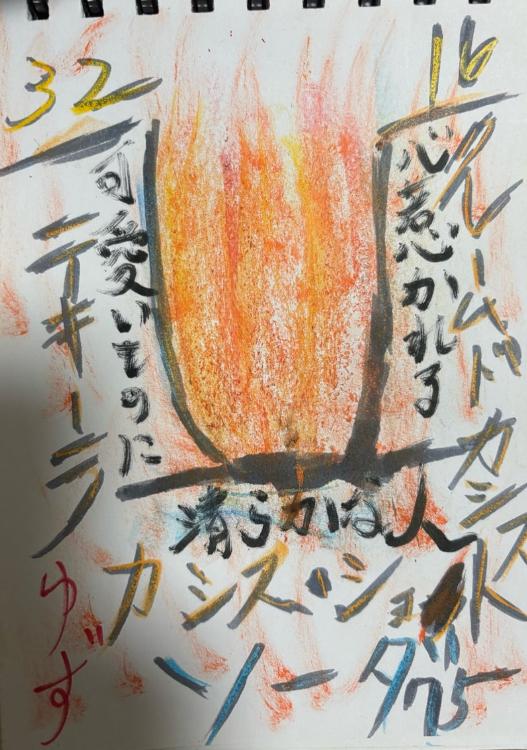 32
16
クレームドカシス
心惹かれる
可愛いものに
テキーラ
清らかな人
カシス・ショット
ゆず
ソーダ75